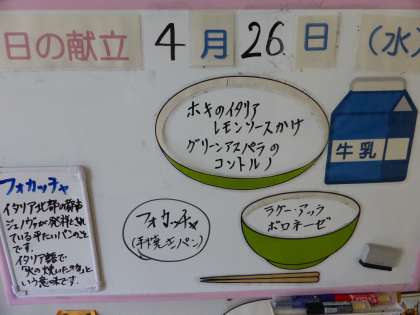 日の献立 4月26日(水)
ホキのイタリア
レモンソースかけ
グリーンアスパラの
コントルノ
牛乳
フォカッチャ
イタリア北部の都市
ジェノヴァが発祥とされ
ている平たいパンのこと
です。
イタリア語で
「火で焼いたもの」と
いう意味です。
フォカッチャ
(手焼きパン)
ラグー・アッラ
ボロネーゼ